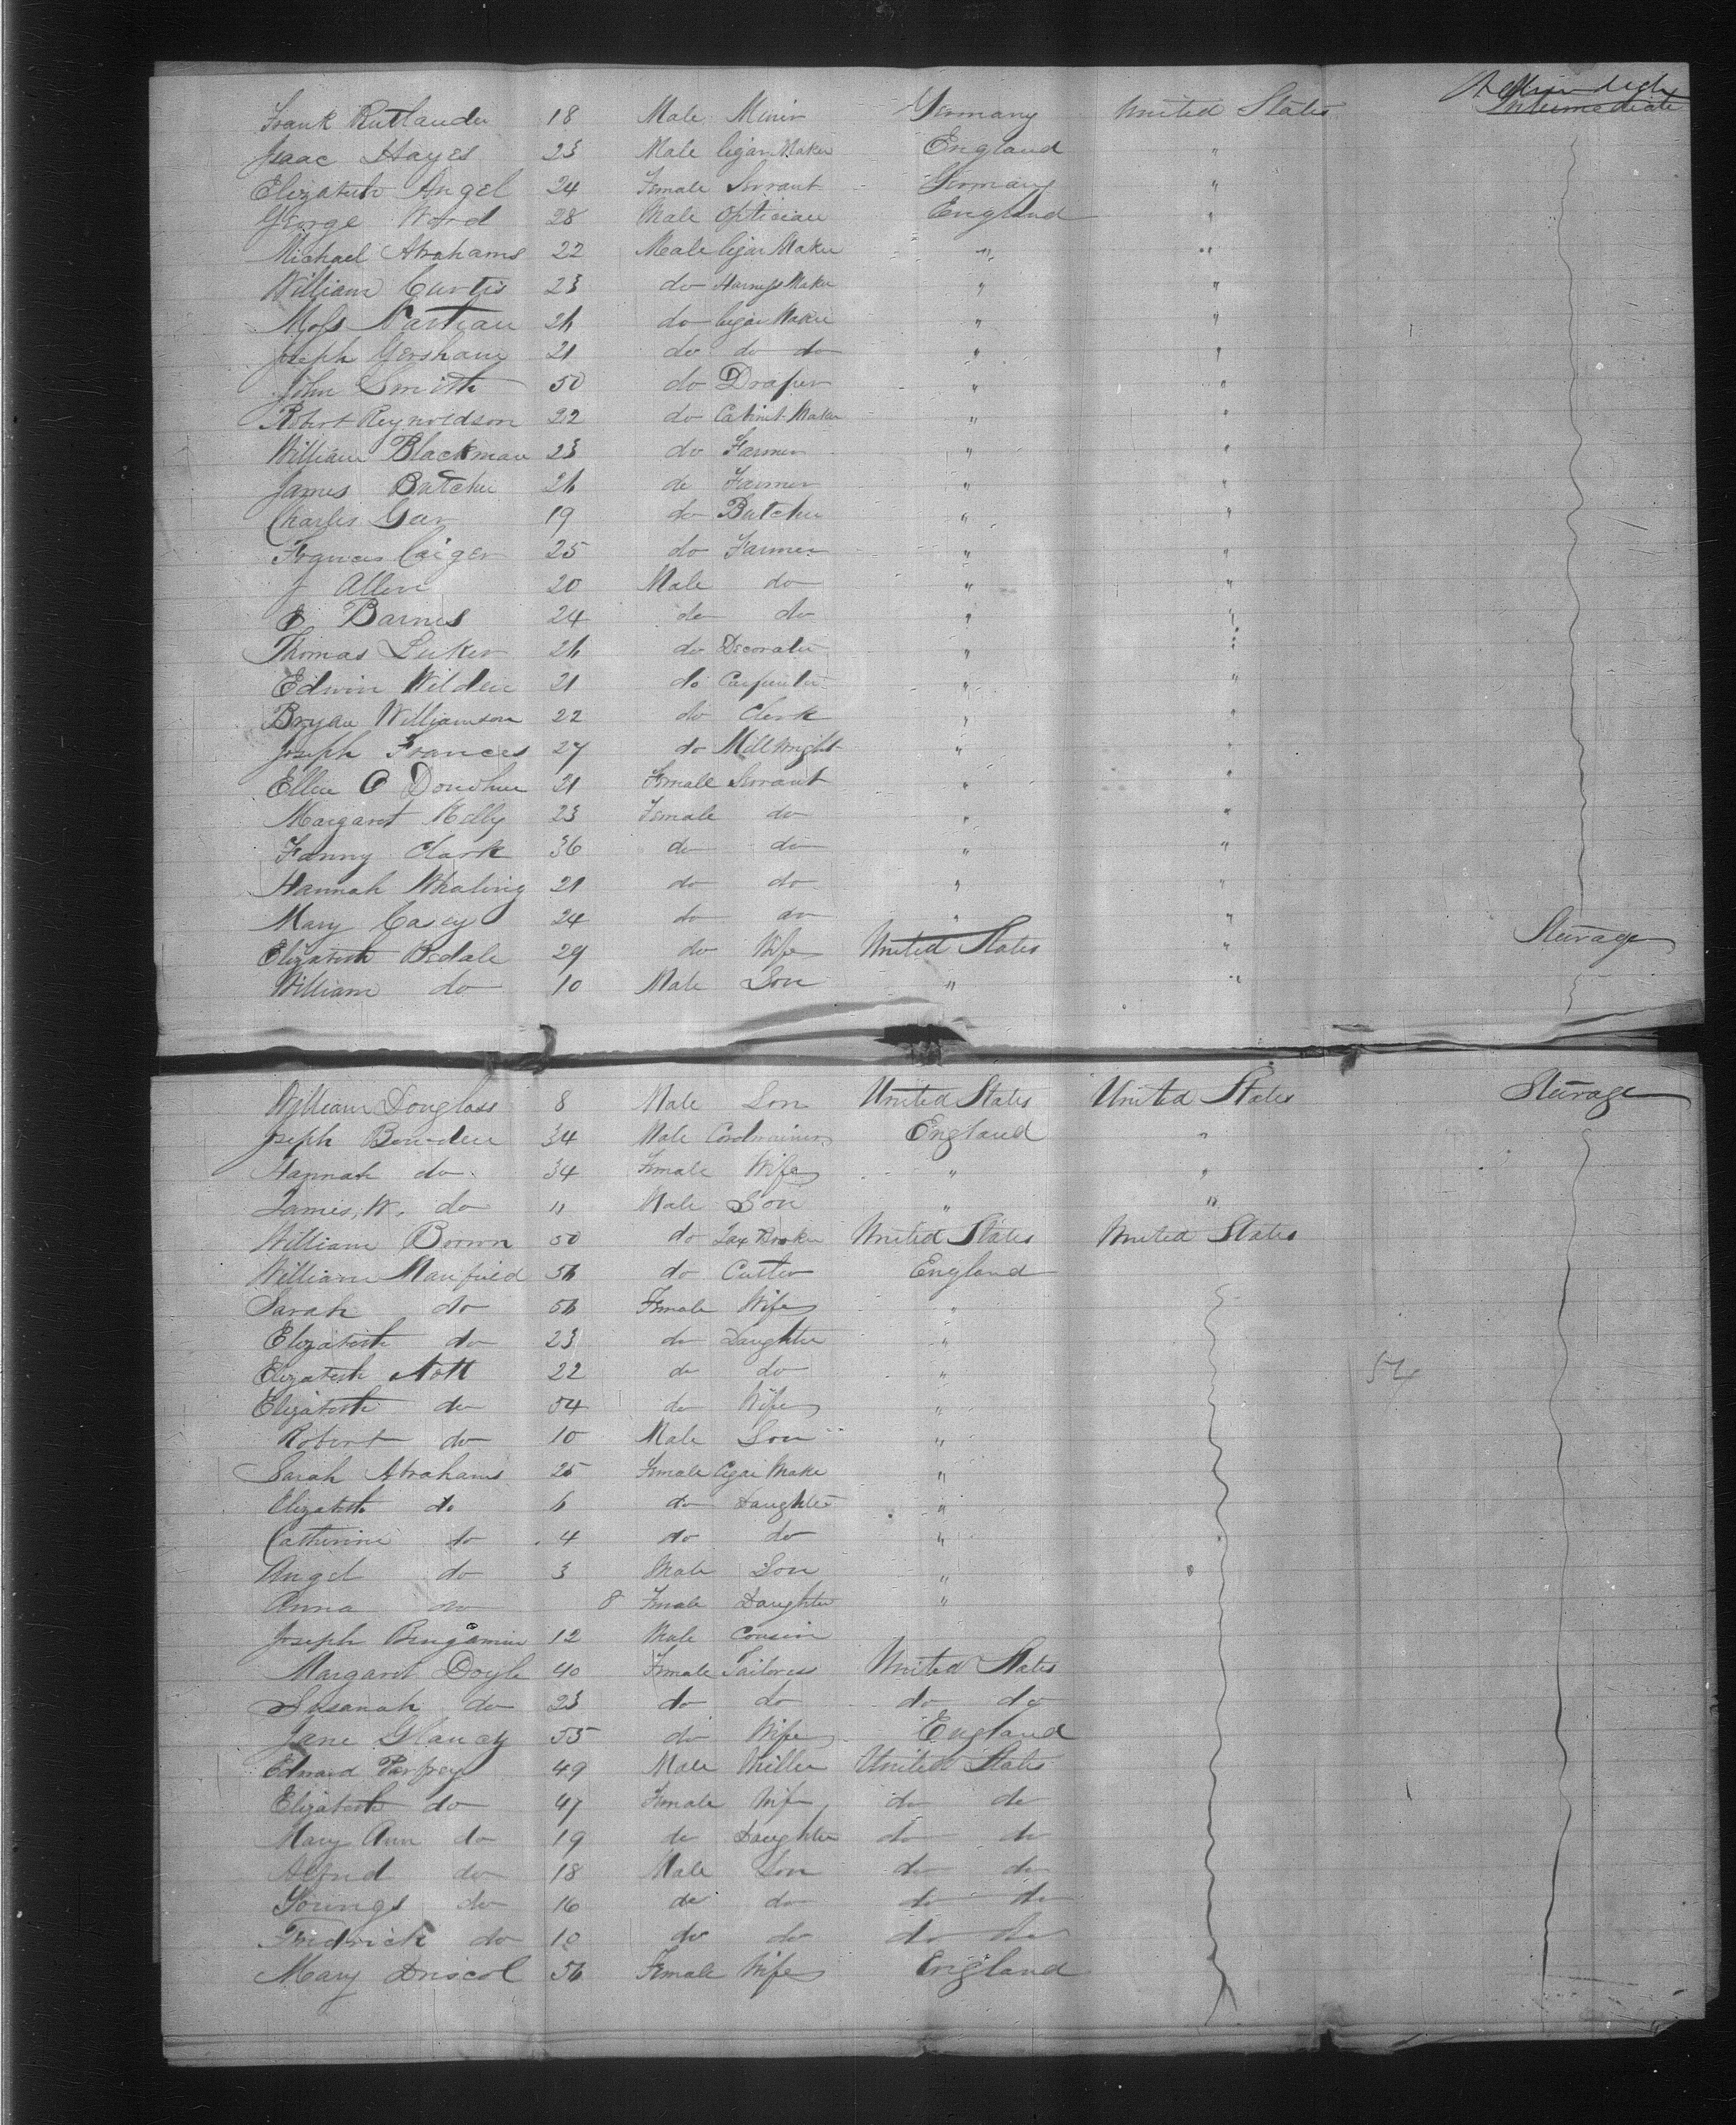 Frank Rutlander 18 Male Minir Germany United States Intermediate
Isaac Hayes 23 Male Cigar Maker England "
Elizabeth Angel 24 Female Servant Germany "
George Word 28 Male Optician England "
Michael Abrahams 22 Male Cigar Maker " "
William Curtis 23 do Harness Maker " "
Moss 26 do Cigar Maker " "
Joseph Gersham 21 do do do " "
John Smith 50 do Draper " "
Robert Reynoldson 22 do Cabinet Maker " "
William Blackman 23 do Farmer " "
James Butcher 26 do Farmer " "
Charles Gear 19 do Butcher " "
Caiger 25 do Farmer " "
J Allen 20 Male do " "
E Barnes 24 do do " "
Thomas 26 do Decorater " "
Edwin Wilden 21 do Carpenter " "
Bryan Williamson 22 do Clerk " "
Joseph Frances 27 do Millwright " "
Ellen O Donohue 21 Female Servant " "
Margaret Kelly 23 Female do " "
Fanny Clark 36 do do " "
Hannah Whaling 21 do do " "
Mary Casey 24 do do " "
Elizabeth 29 do Wife United States " Steerage
William do 10 Male Son " "
William Douglass 8 Male Son United States United States Steerage
Joseph Bowden 34 Male Cordwainer England "
Hannah do 34 Female Wife " "
James W. do 11 Male Son " "
William Brown 50 do Broker United States United States
William Manfield 56 do Cutter England
Sarah do 56 Female Wife "
Elizabeth do 23 do Daughter "
Elizabeth Nott 22 do do "
Elizabeth do 54 do Wife "
Robert do 10 Male Son "
Sarah Abrahams 25 Female Cigar Make "
Elizabeth do 6 do Daughter "
Catherine do 4 do do "
Angel do 3 Male Son "
Anna do 8 Female Daughter "
Joseph Bengamin 12 Male Cousin
Margaret Doyle 40 Female Tailoress United States
Susanah do 23 do do do do
Jane Glancy 55 do Wife England
Edward Parfrey 49 Male Miller United States
Elizabeth do 47 Female Wife do do
Mary Ann do 19 do Daughter do do
Alfred do 18 Male Son do do
Youngs do 16 do do do do
Fredrick do 10 do do do do
Mary Driscol 56 Female Wife England